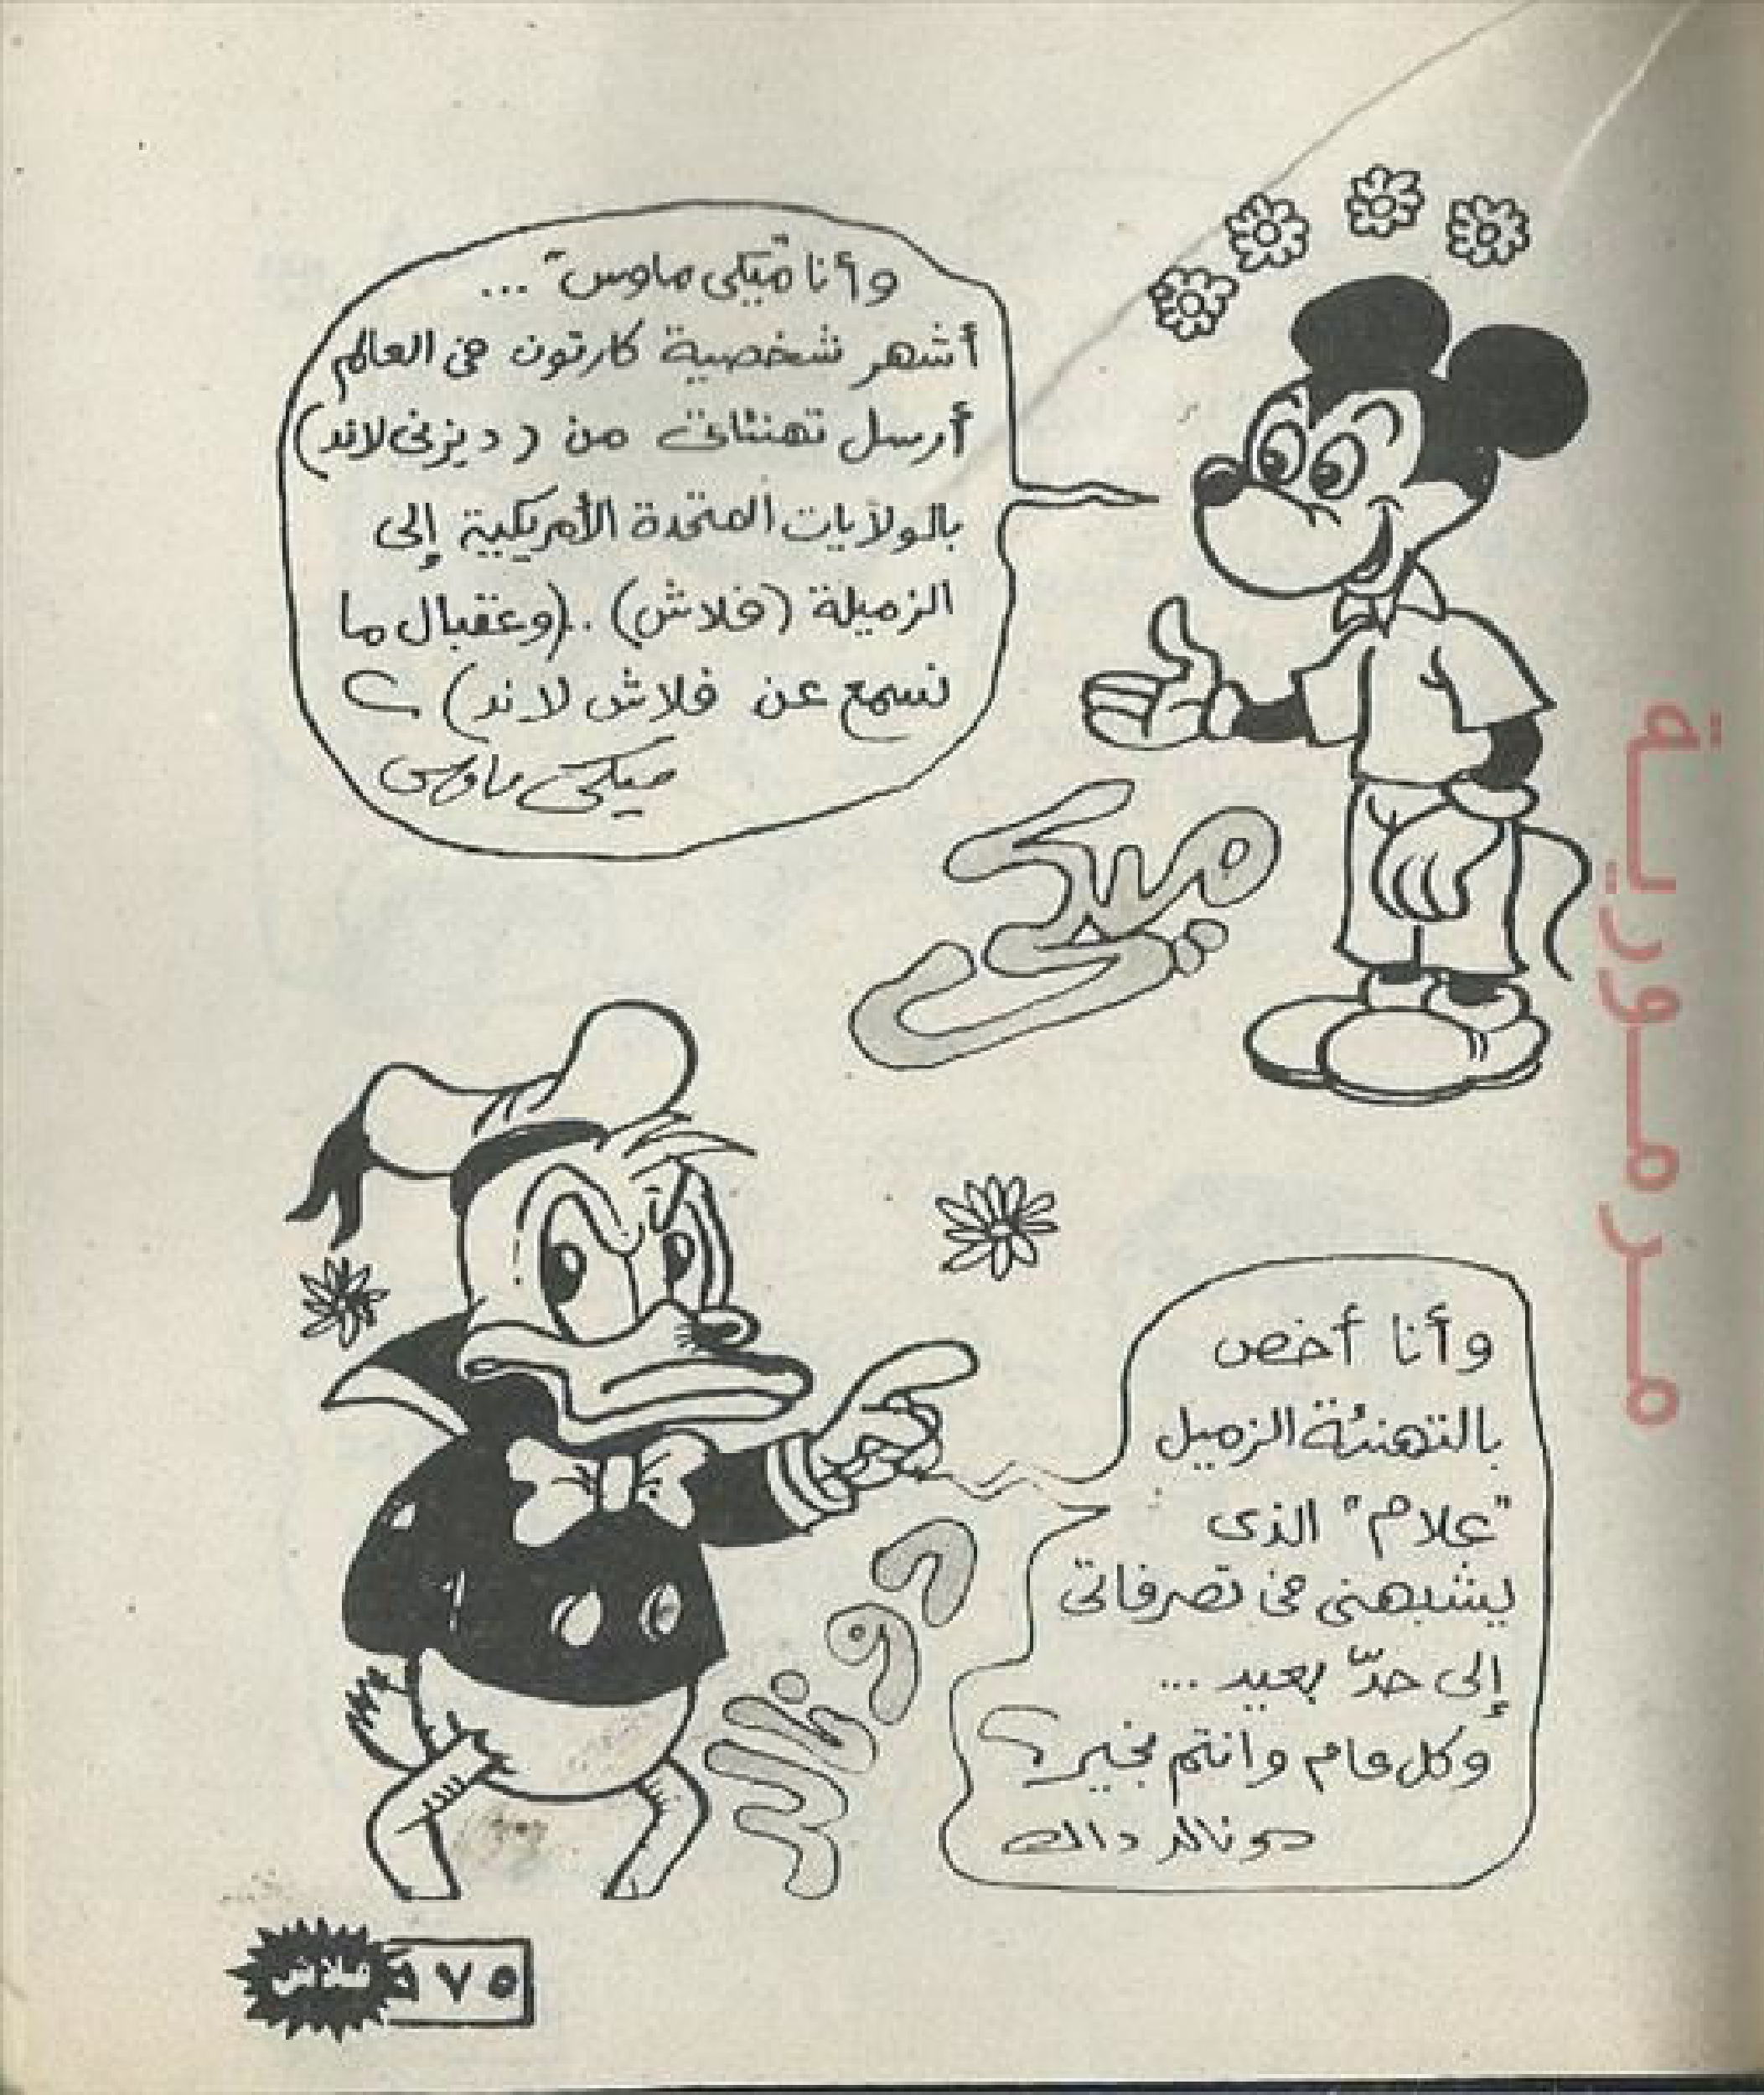 وأنا "ميكى ماوس" ...
أشهر شخصية كارتون فى العالم
أرسل تهنئاتى من (ديزنى لاند)
بالولايات المتحدة الأمريكية إلى
الزميلة (فلاش) .. (وعقبال ما
نسمع عن فلاش لاند)
ميكى ماوس
ميكى
وأنا أخص
بالتهنئة الزميل
"علام" الذى
يشبهنى فى تصرفاتى
إلى حدّ بعيد ...
وكل عام وانتم بخير
دونالد داك
دونالد
فلاش ١٧٥
مرمورية